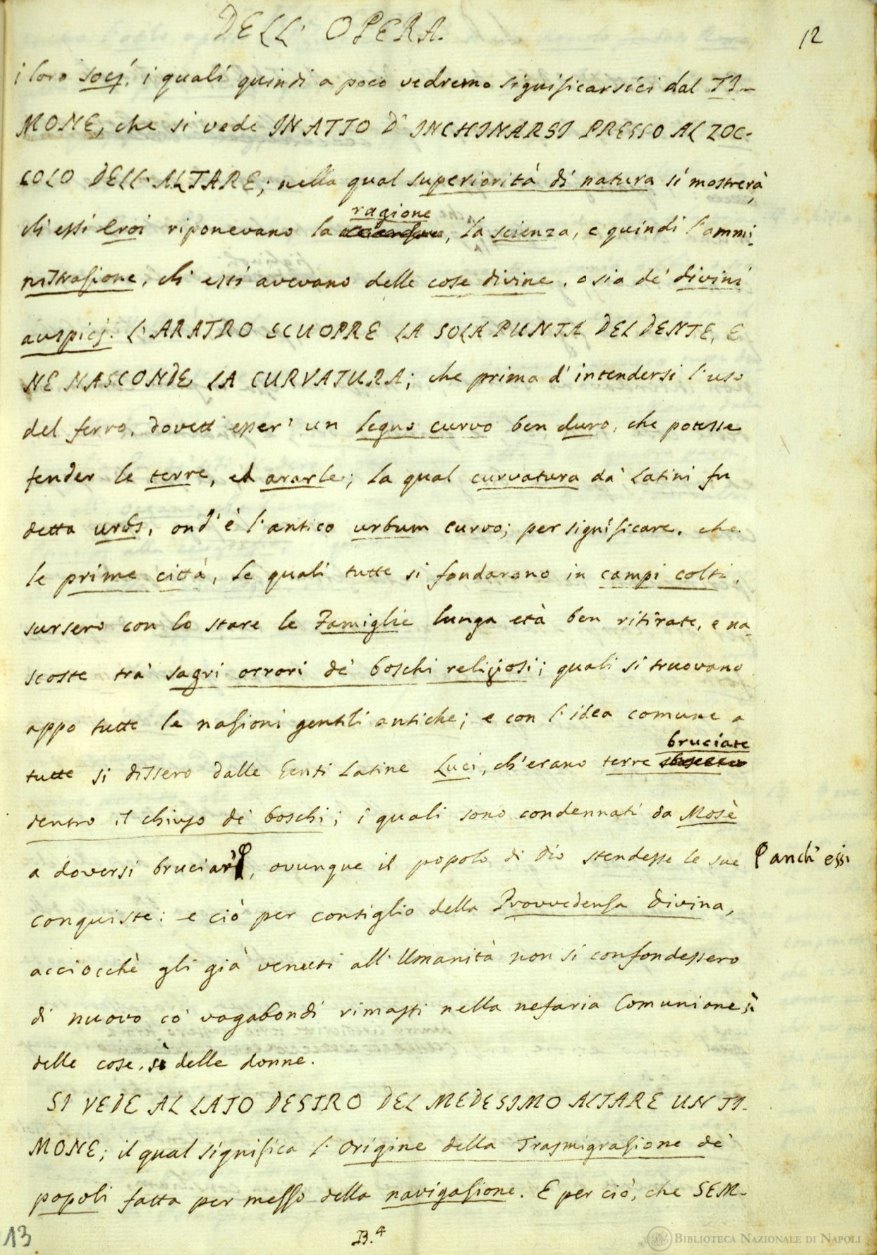 DELL' OPERA.
12
i loro socj, i quali quindi a poco vedremo significarsici dal TI-
MONE, che si vede IN ATTO D' INCHINARSI PRESSO AL ZOC-
COLO DELL' ALTARE; nella qual superiorità di natura si mostrerà,
ch' essi Eroi riponevano la ragione, la scienza, e quindi l' ammi-
nistrazione, ch' essi avevano delle cose divine, o sia de' divini
auspicj. L' ARATRO SCUOPRE LA SOLA PUNTA DEL DENTE, E
NE NASCONDE LA CURVATURA; che prima d' intendersi l' uso
del ferro, dovett' esser' un legno curvo ben duro, che potesse
fender le terre, ed ararle; la qual curvatura da' Latini fu
detta urbs, ond' è l' antico urbum curvo; per significare, che
le prime città, le quali tutte si fondarono in campi colti,
sursero con lo stare le Famiglie lunga età ben ritirate, e na-
scoste tra' sagri orrori de' boschi religiosi; quali si truovano
appo tutte le nazioni gentili antiche; e con l' idea comune a
tutte si dissero dalle Genti Latine Luci, ch' erano terre bruciate
dentro il chiuso de' boschi; i quali sono condennati da Mosè
a doversi bruciar' anch' essi, ovunque il popolo di Dio stendesse le sue
conquiste: e ciò per consiglio della Provvedenza Divina,
acciocchè gli già venuti all' Umanità non si confondessero
di nuovo co' vagabondi rimasti nella nefaria Comunione, sì
delle cose, sì delle donne.
SI VEDE AL LATO DESTRO DEL MEDESIMO ALTARE UN TI-
MONE; il qual significa l' Origine della Trasmigrazione de'
popoli fatta per mezzo della navigazione. E per ciò, che SEM-
B.4
13
BIBLIOTECA NAZIONALE DI NAPOLI